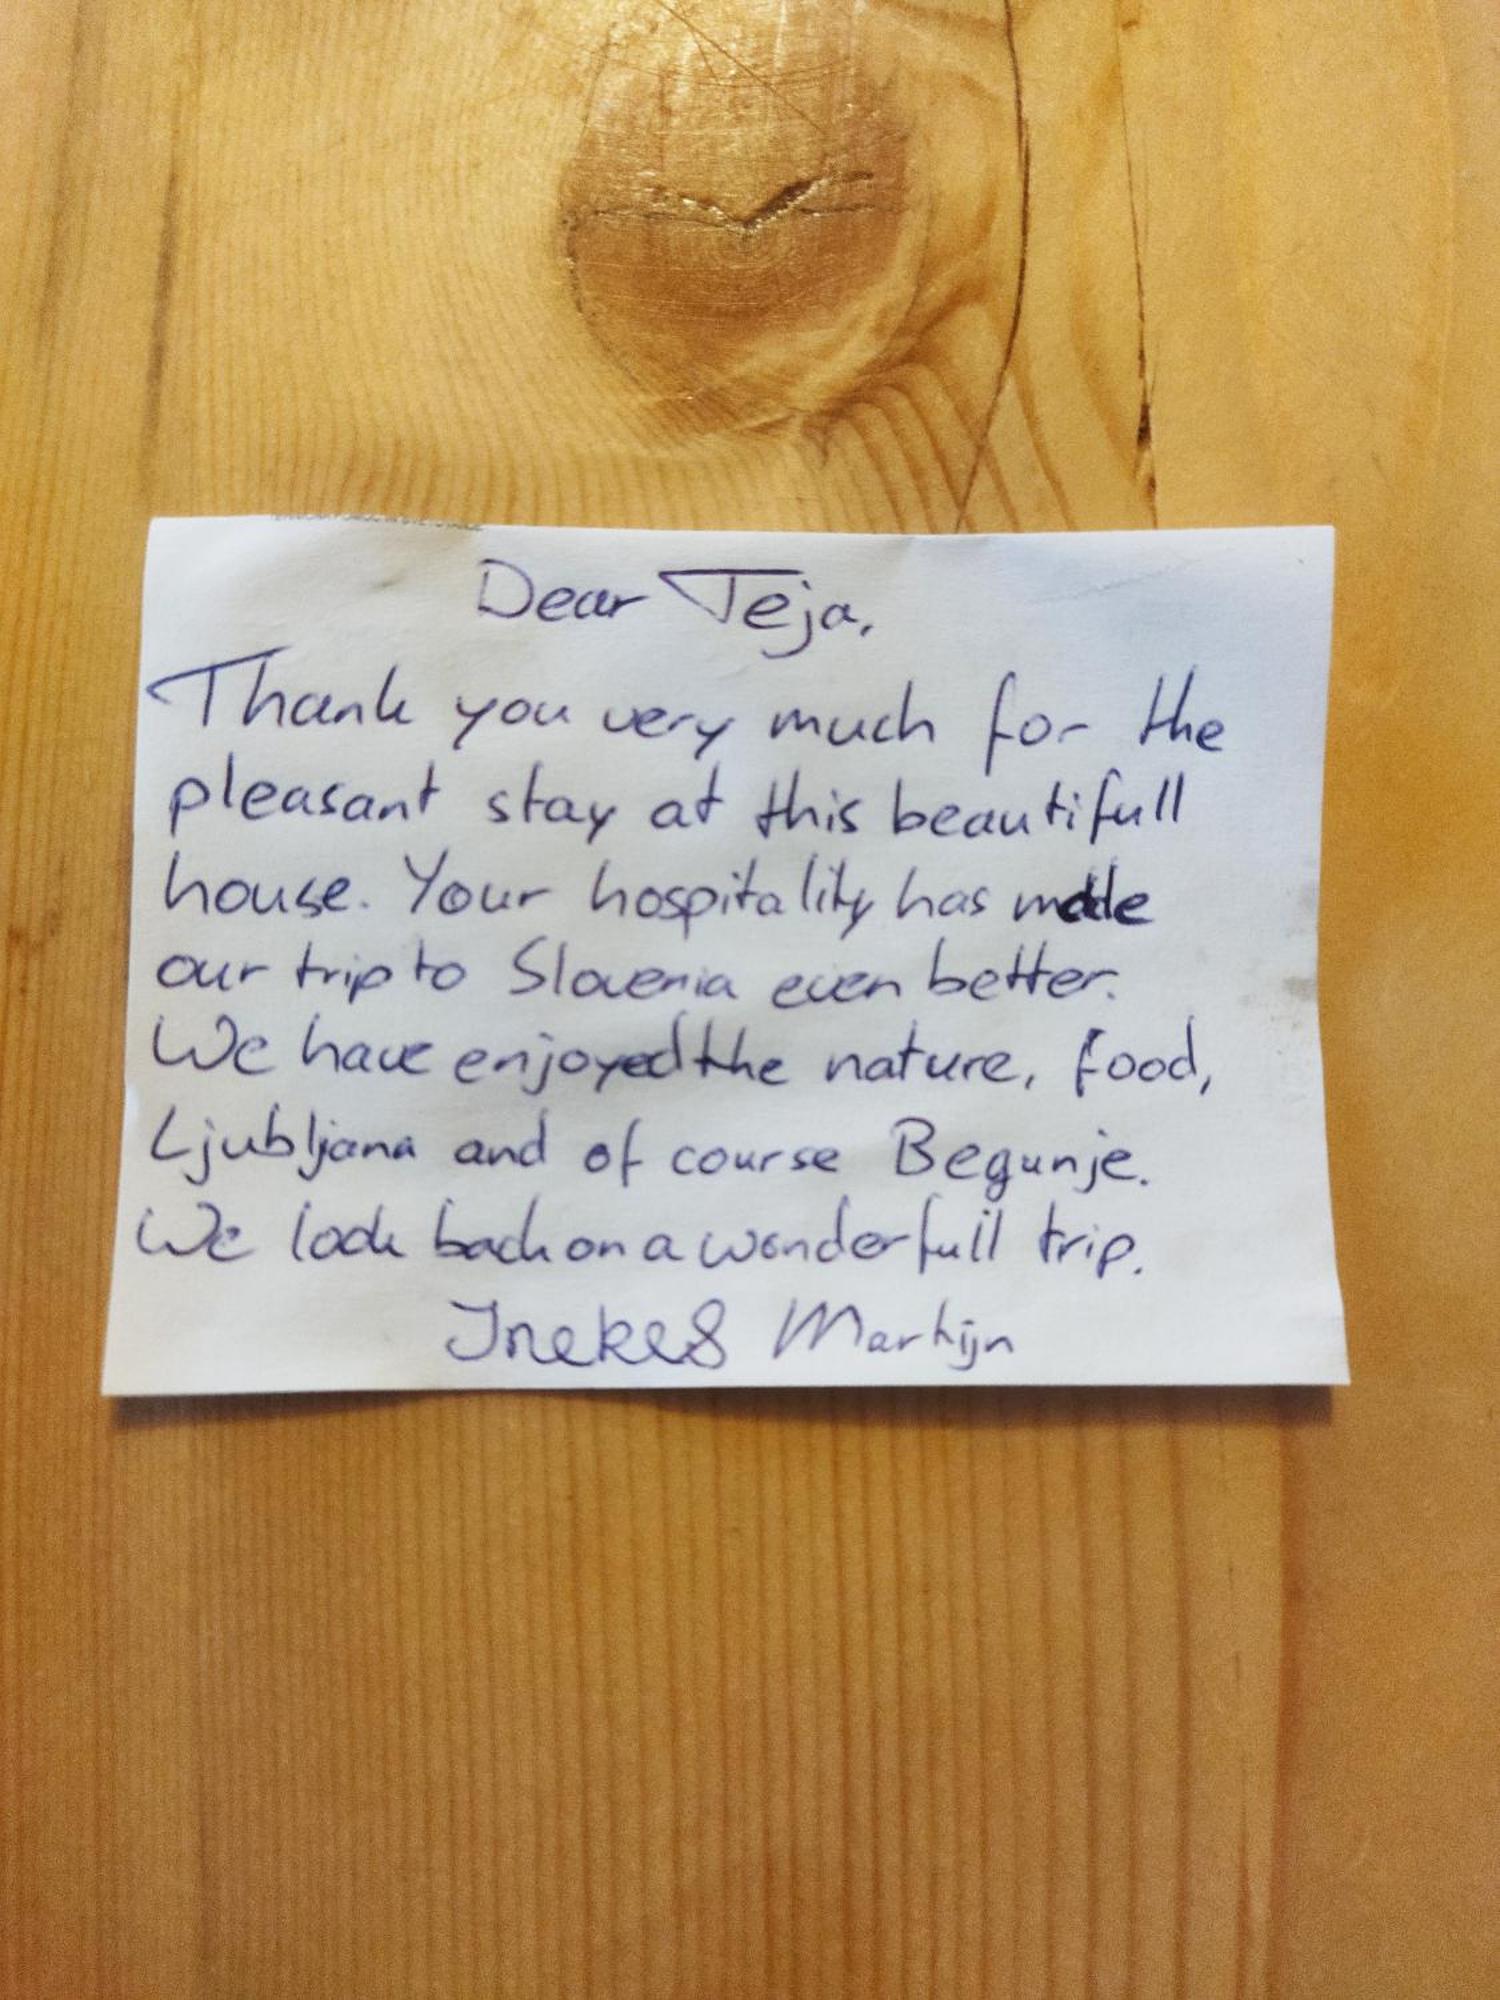 Dear Teja,
Thank you very much for the
pleasant stay at this beautifull
house. Your hospitality has made
our trip to Slovenia even better.
We have enjoyed the nature, food,
Ljubljana and of course Begunje.
We look back on a wonderfull trip.
Ineke & Martijn